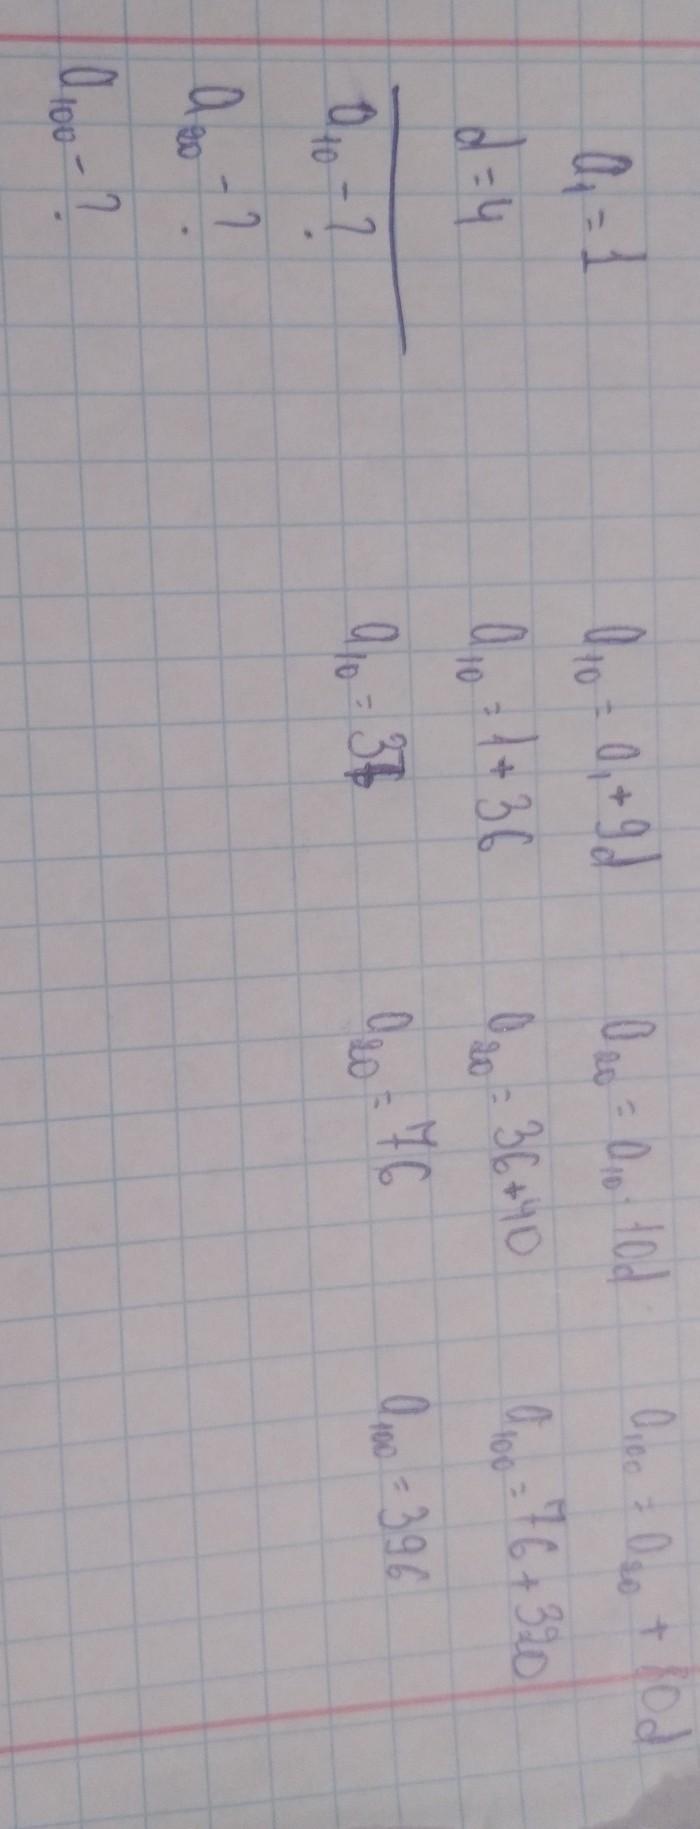 a₁ = 1
d = 4
a₁₀ - ?
a₂₀ - ?
a₁₀₀ - ?
a₁₀ = a₁ + 9d
a₁₀ = 1 + 36
a₁₀ = 37
a₂₀ = a₁₀ · 10d
a₂₀ = 36 + 40
a₂₀ = 76
a₁₀₀ = a₂₀ + 80d
a₁₀₀ = 76 + 320
a₁₀₀ = 396